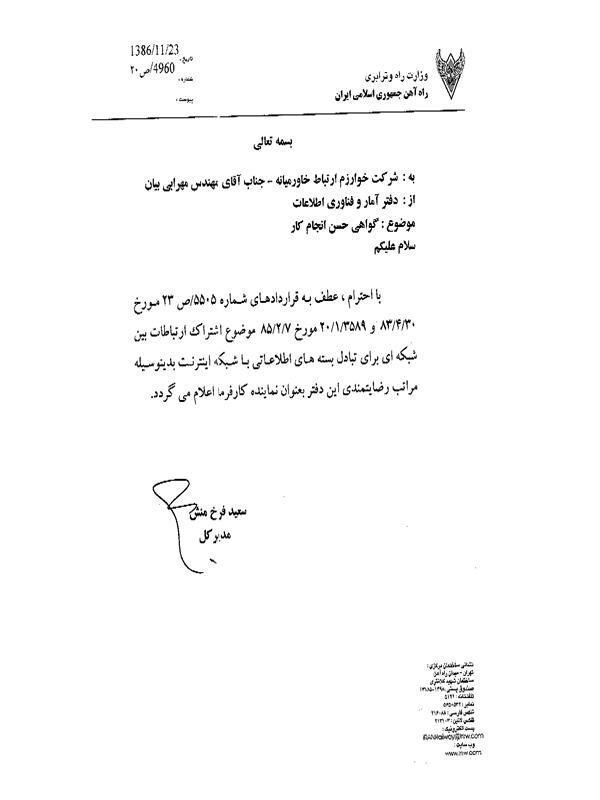 وزارت راه و ترابری
راه آهن جمهوری اسلامی ایران
تاریخ: 1386/11/23
شماره: 4960/ص ۲۰
پیوست:
بسمه تعالی
به : شرکت خوارزم ارتباط خاورمیانه - جناب آقای مهندس مهرابی بیان
از : دفتر آمار و فناوری اطلاعات
موضوع : گواهی حسن انجام کار
سلام علیکم
با احترام ، عطف به قراردادهای شماره ۵۵۰۵/ص ۲۳ مورخ
۸۳/۴/۳۰ و ۲۰/۱/۳۵۸۹ مورخ ۸۵/۲/۷ موضوع اشتراک ارتباطات بین
شبکه ای برای تبادل بسته های اطلاعاتی با شبکه اینترنت بدینوسیله
مراتب رضایتمندی این دفتر بعنوان نماینده کارفرما اعلام می گردد.
سعید فرخ منش
مدیر کل
نشانی ساختمان مرکزی :
تهران - میدان راه آهن
ساختمان شهید کلانتری
صندوق پستی : ۱۳۱۸۵-۱۴۹۸
تلفنخانه : ۵۱۲۱
نمابر :
تلکس فارسی : ۲۱۶۰۸۸
تلکس لاتین : ۲۱۳۱۰۳
پست الکترونیک :
وب سایت :